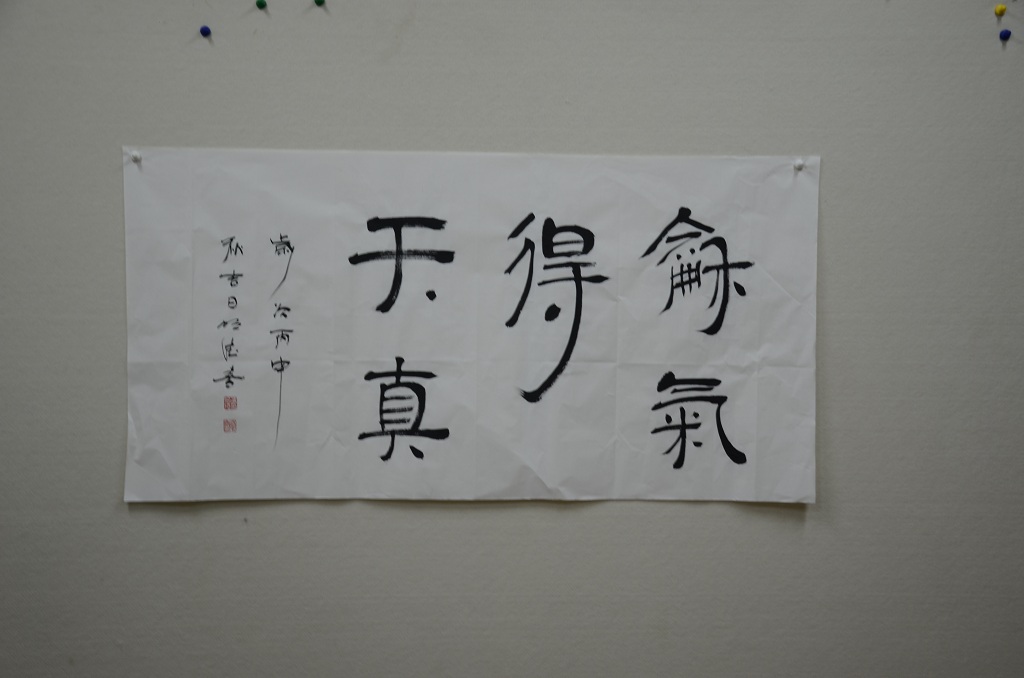 龢氣
得
天真
歲次丙申
秋吉日